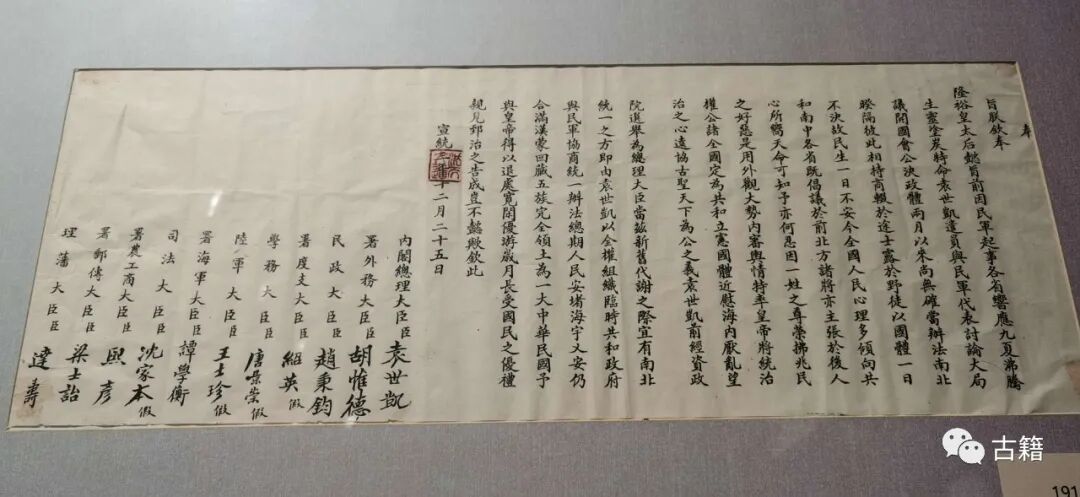 奉
旨朕欽奉
隆裕皇太后懿旨前因民軍起事各省響應九夏沸騰
生靈塗炭特命袁世凱遣員與民軍代表討論大局
議開國會公決政體兩月以來尚無確當辦法南北
暌隔彼此相持商輟於途士露於野徒以國體一日
不決故民生一日不安今全國人民心理多傾向共
和南中各省既倡議於前北方諸將亦主張於後人
心所嚮天命可知予亦何忍因一姓之尊榮拂兆民
之好惡是用外觀大勢內審輿情特率皇帝將統治
權公諸全國定為共和立憲國體近慰海內厭亂望
治之心遠協古聖天下為公之義袁世凱前經資政
院選舉為總理大臣當茲新舊代謝之際宜有南北
統一之方即由袁世凱以全權組織臨時共和政府
與民軍協商統一辦法總期人民安堵海宇乂安仍
合滿漢蒙回藏五族完全領土為一大中華民國予
與皇帝得以退處寬閒優游歲月長受國民之優禮
親見郅治之告成豈不懿歟欽此
宣統三年十二月二十五日
內閣總理大臣臣袁世凱
署外務大臣臣胡惟德
民政大臣臣趙秉鈞
署度支大臣臣紹英假
學務大臣臣唐景崇假
陸軍大臣臣王士珍假
署海軍大臣臣譚學衡
司法大臣臣沈家本假
署農工商大臣臣熙彥
署郵傳大臣臣梁士詒
理藩大臣臣達壽
古籍
191